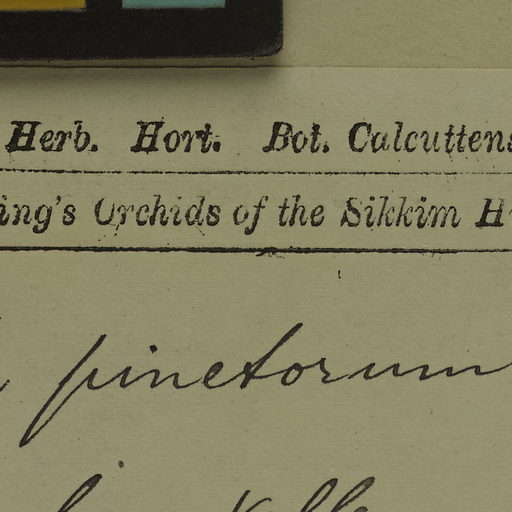 Herb. Hort. Bot. Calcuttens
ing's Orchids of the Sikkim H
pinetorum